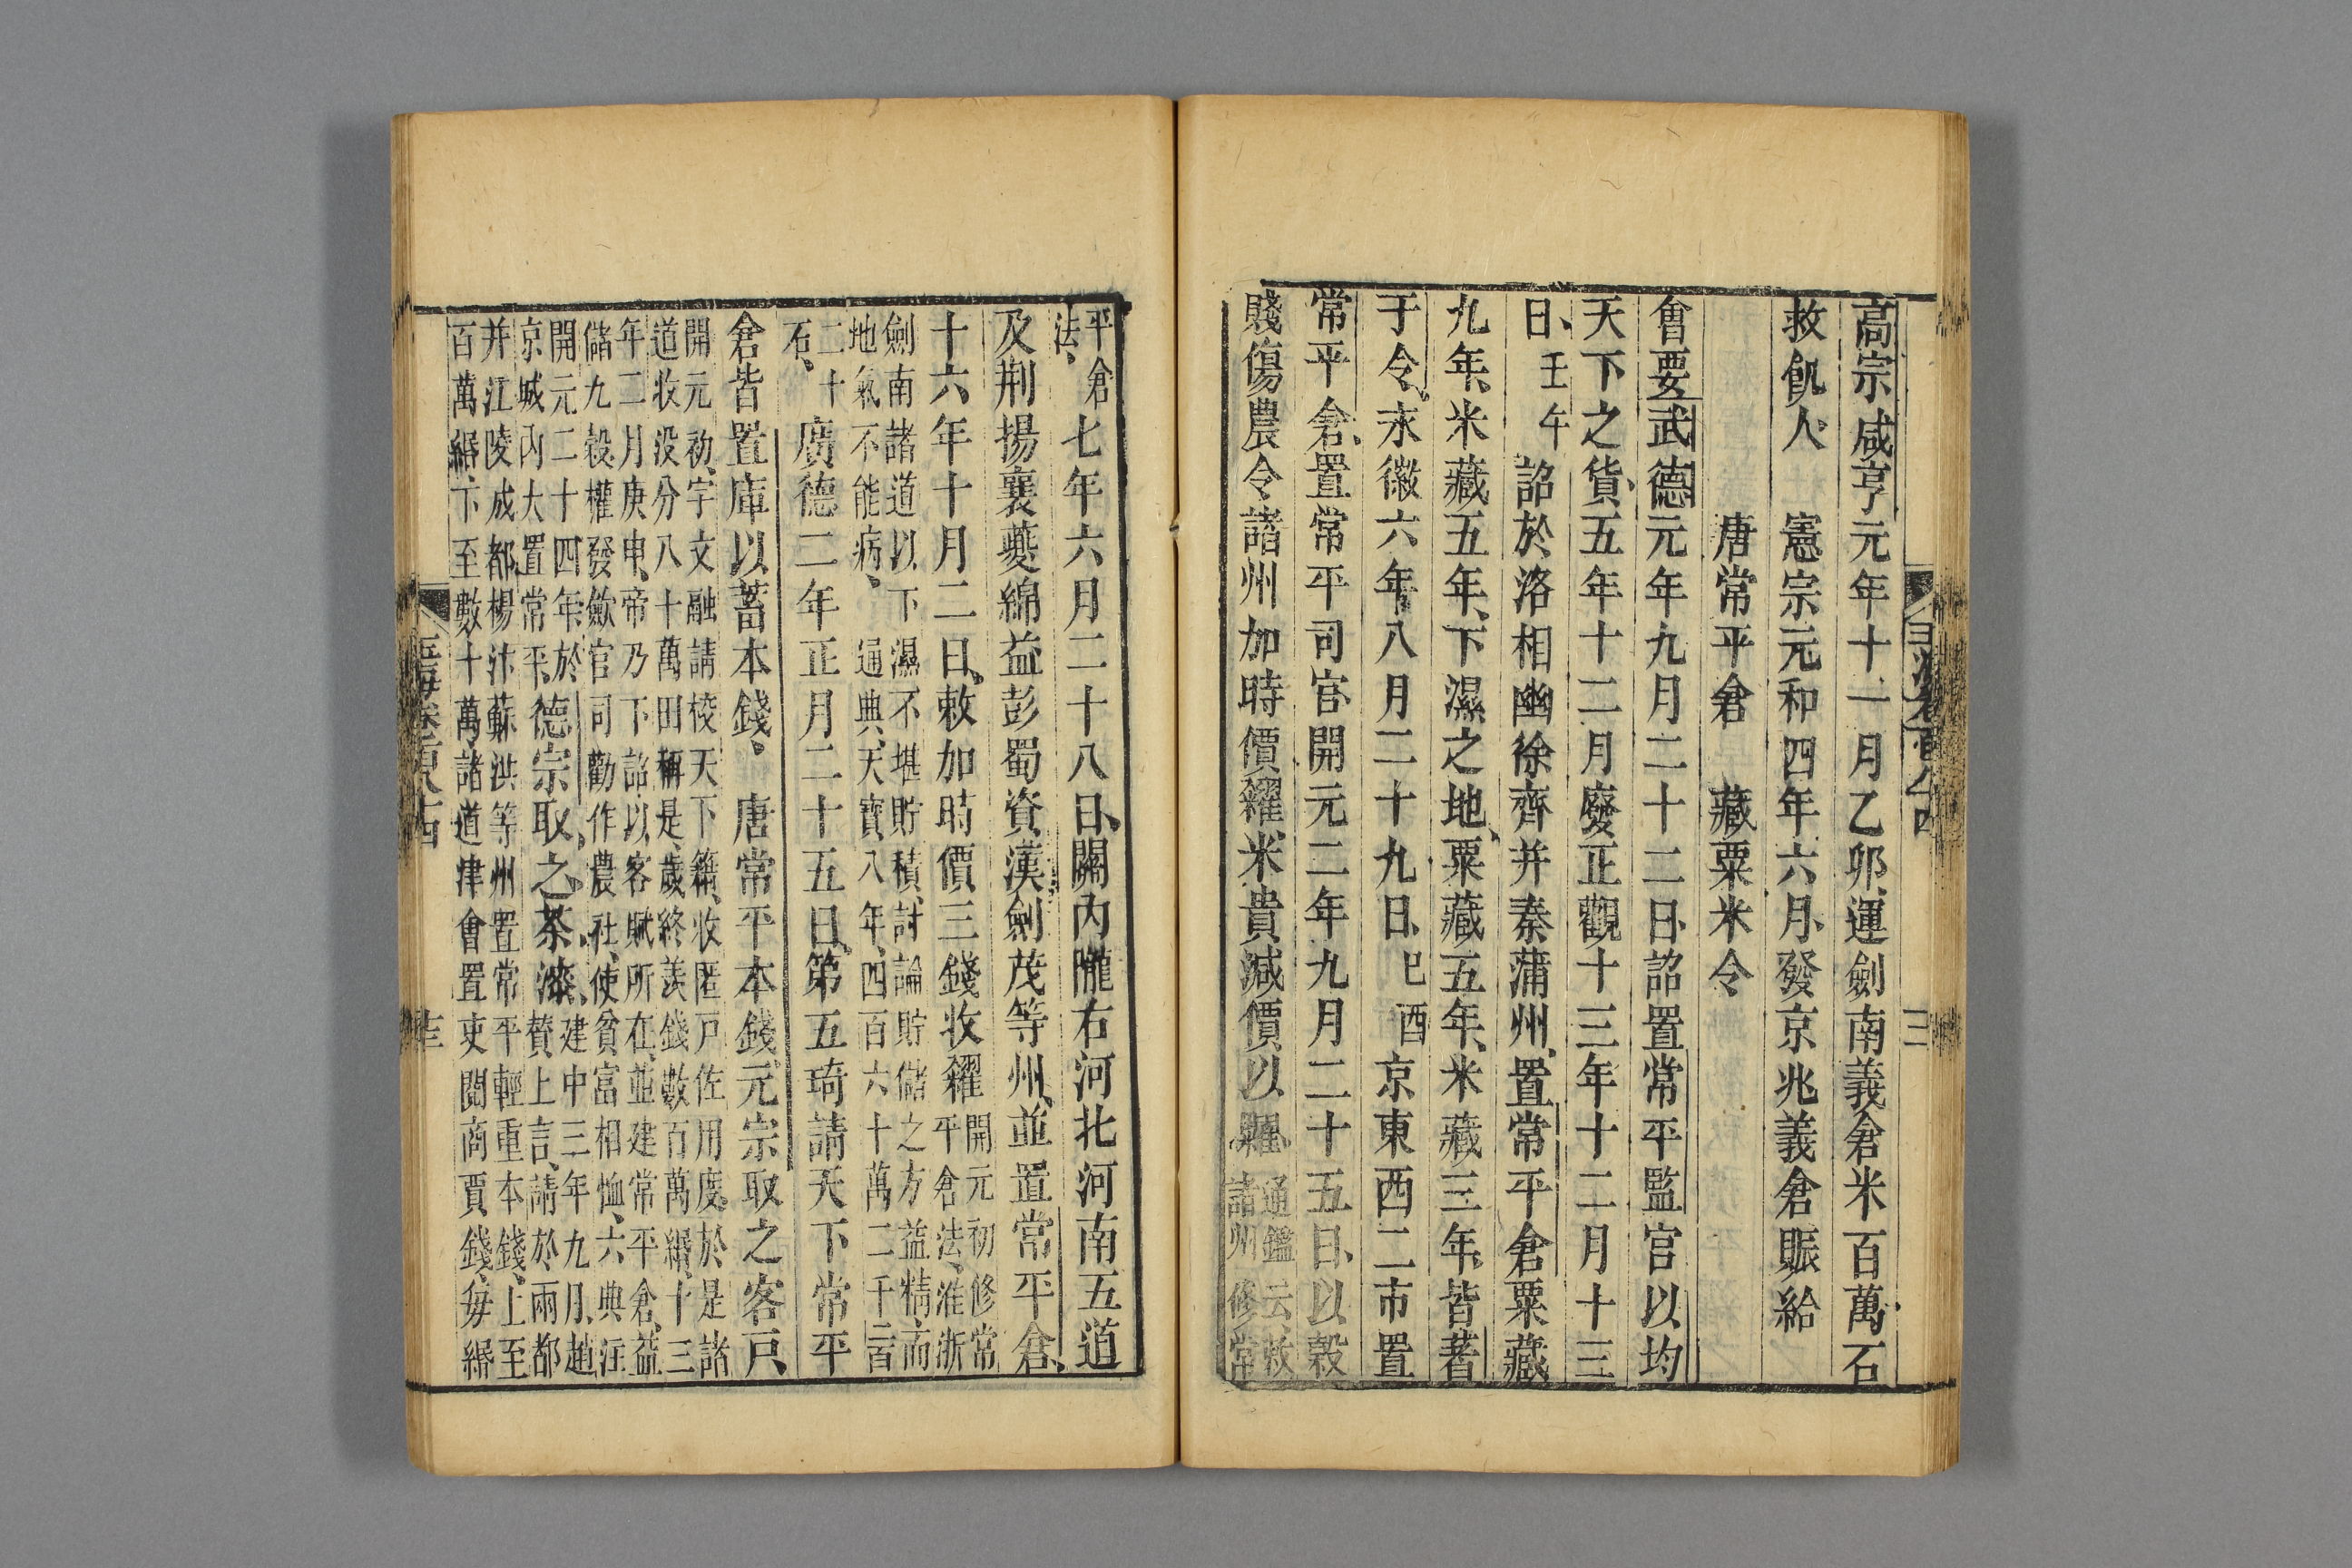 高宗咸亨元年十一月乙卯、運劍南義倉米百萬石
救飢人、憲宗元和四年六月、發京兆義倉賑給
唐常平倉　藏粟米令
會要武德元年九月二十二日、詔置常平監官以均
天下之貨、五年十二月廢、正觀十三年十二月十三
日、壬午詔於洛相幽徐齊并秦蒲州、置常平倉粟藏
九年、米藏五年、下濕之地、粟藏五年、米藏三年、皆著
于令、永徽六年八月二十九日、己酉京東西二市置
常平倉、置常平司官、開元二年九月二十五日、以穀
賤傷農令諸州加時價糴、米貴減價以糶、通鑑云敕
諸州修常
平倉
法、七年六月二十八日、關內隴右河北河南五道
及荆揚襄夔綿益彭蜀資漢劍茂等州、並置常平倉、
十六年十月二日、敕加時價三錢收糴開元初修常
平倉法、淮浙
劍南諸道以下濕不堪貯積、討論貯儲之方益精、而
地氣不能病、通典、天寶八年、四百六十萬二千二百
二十
石、廣德二年正月二十五日、第五琦請天下常平
倉皆置庫以蓄本錢、唐常平本錢、元宗取之客戶、
開元初、宇文融請校天下籍、收匿戶佐用度、於是諸
道收沒分八十萬田稱是、歲終羨錢數百萬緡、十三
年二月庚申、帝乃下詔、以客賦所在、並建常平倉、益
儲九穀、權發斂官司勸作農社、使貧富相恤、六典注
開元二十四年、於
京城內大置常平、德宗取之茶漆、建中三年九月、趙
贊上言、請於兩都
并江陵成都楊汴蘇洪等州置常平輕重本錢、上至
百萬緡、下至數十萬、諸道津會置吏閱商賈錢、每緡
玉海卷一百八十四